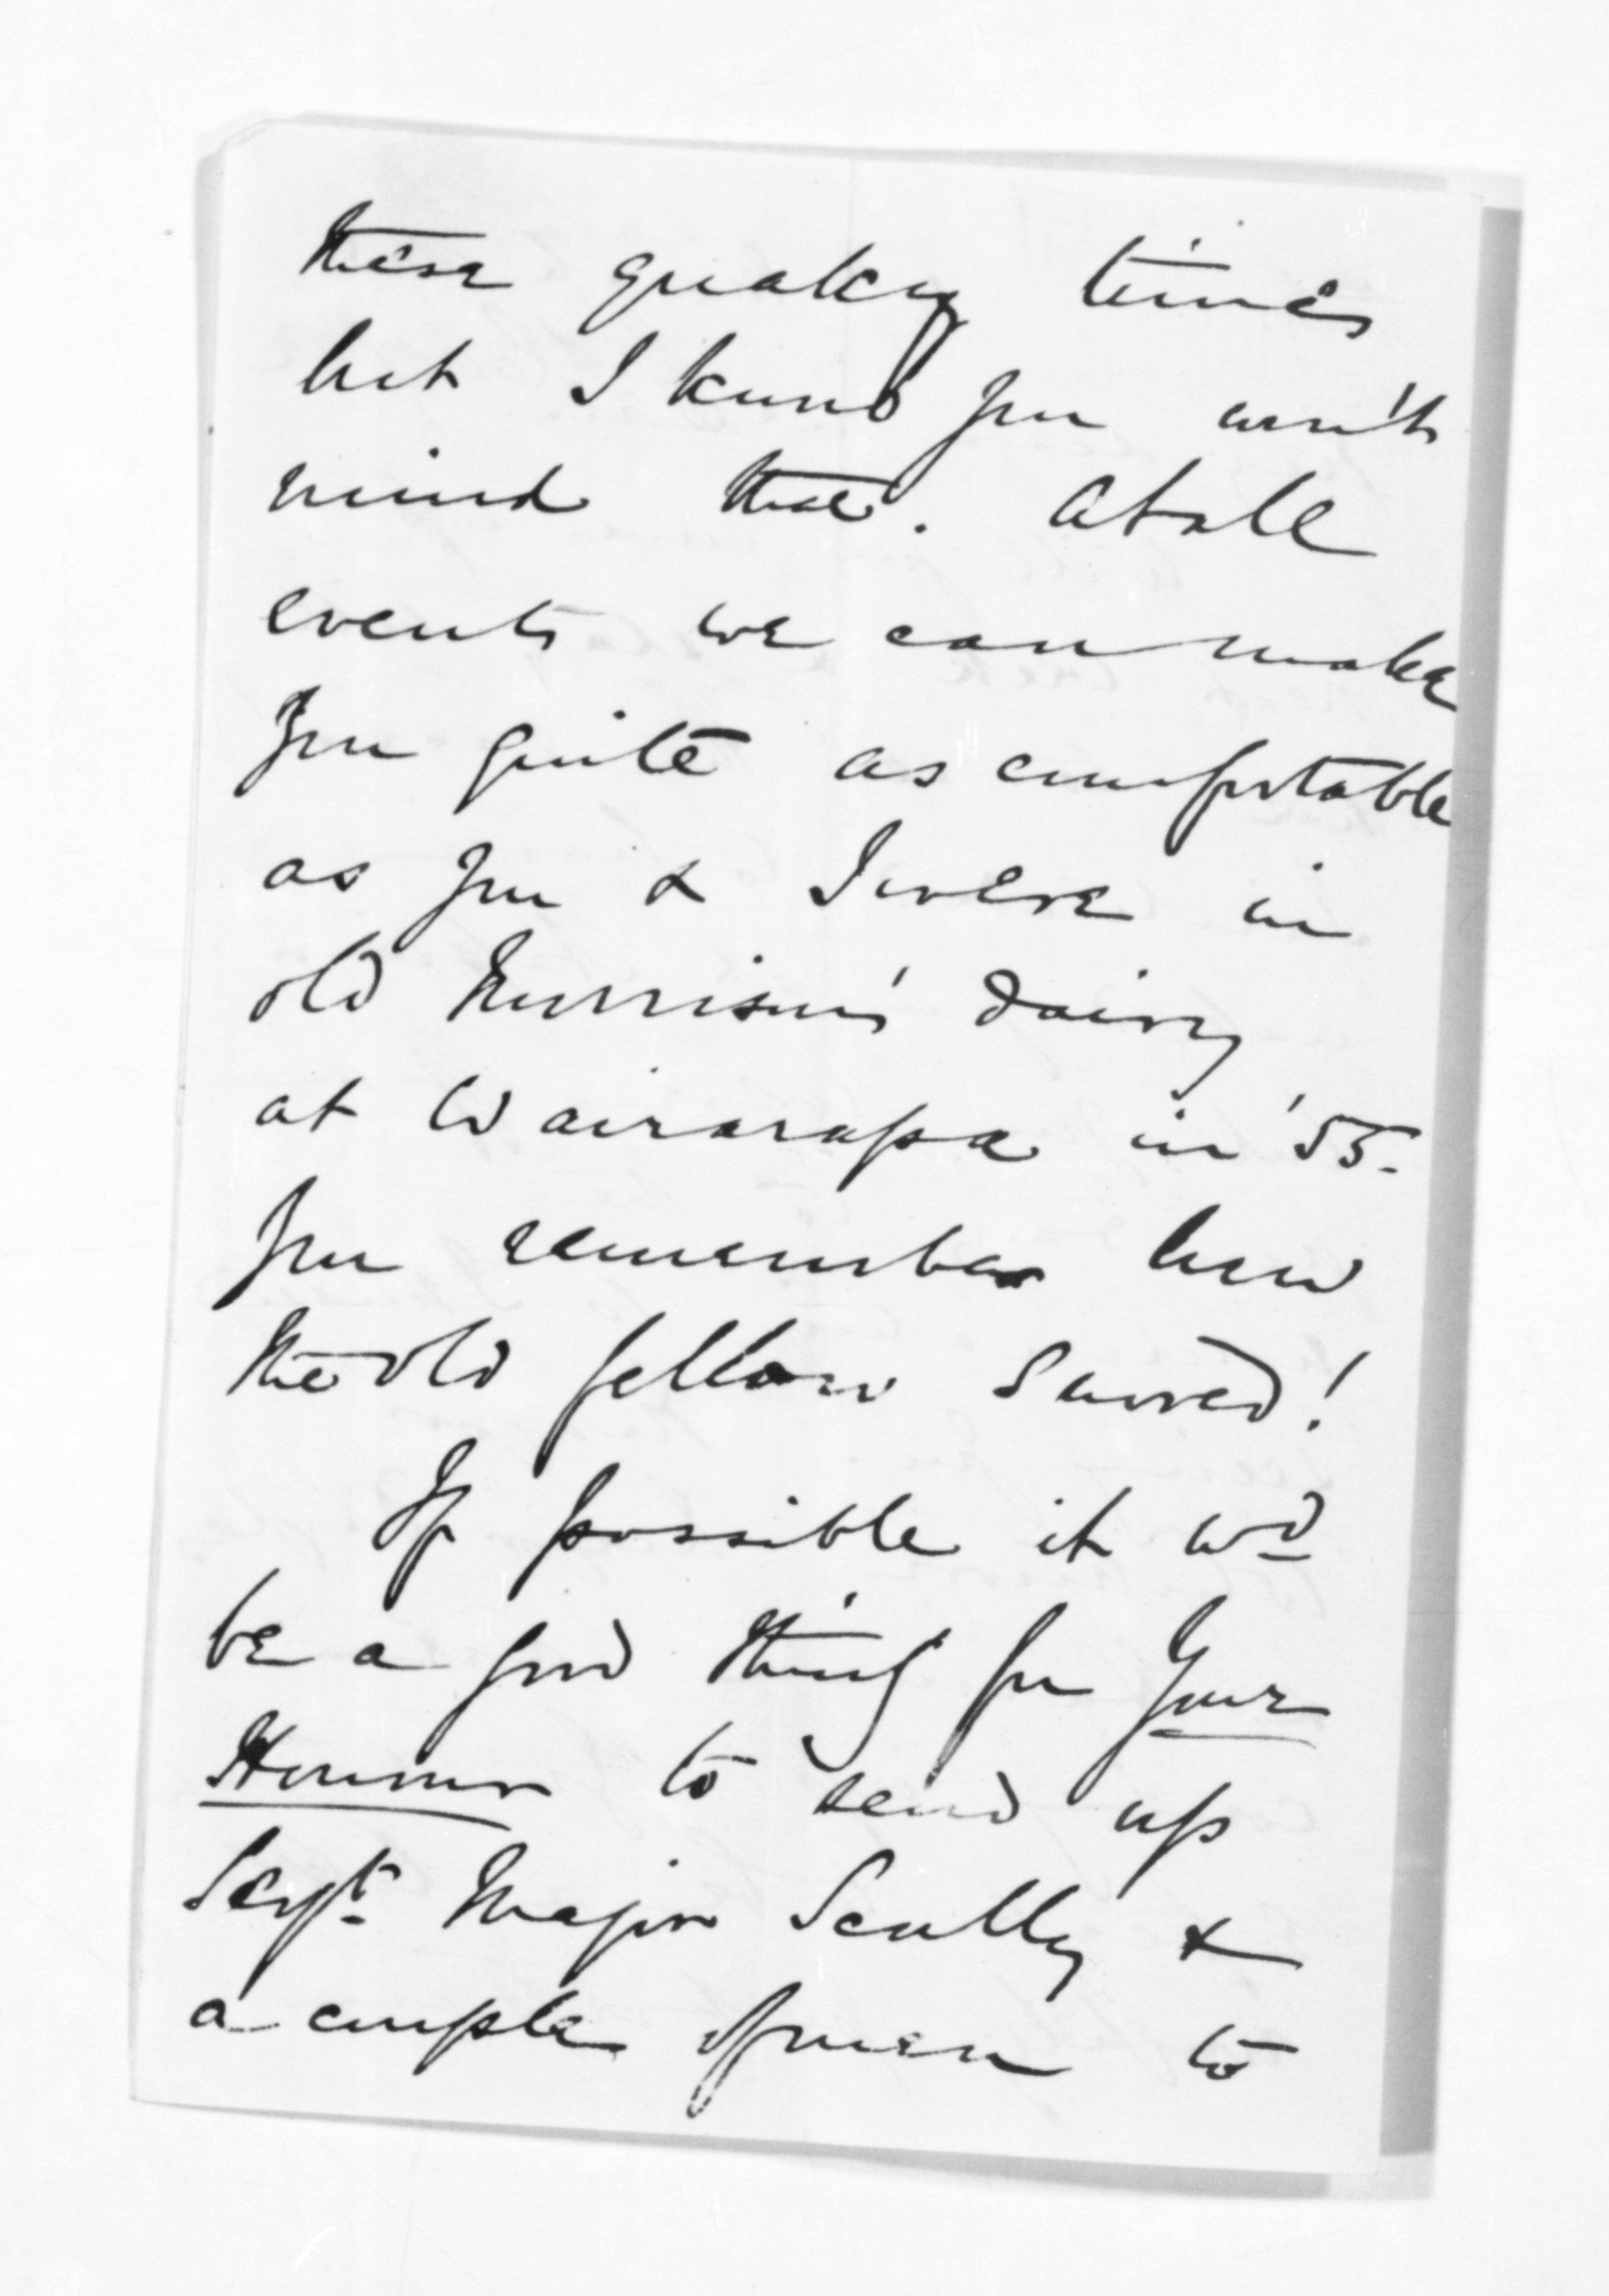 these quaky times
but I know you won't
mind that. At all
events we can make
you quite as comfortable
as you & I were in
old Morrison's dairy
at Wairarapa in '55.
You remember how
the old fellow snored!
If possible it wd
be a good thing for Your
Honour to send up
Sergt. Major Scully &
a couple of men to